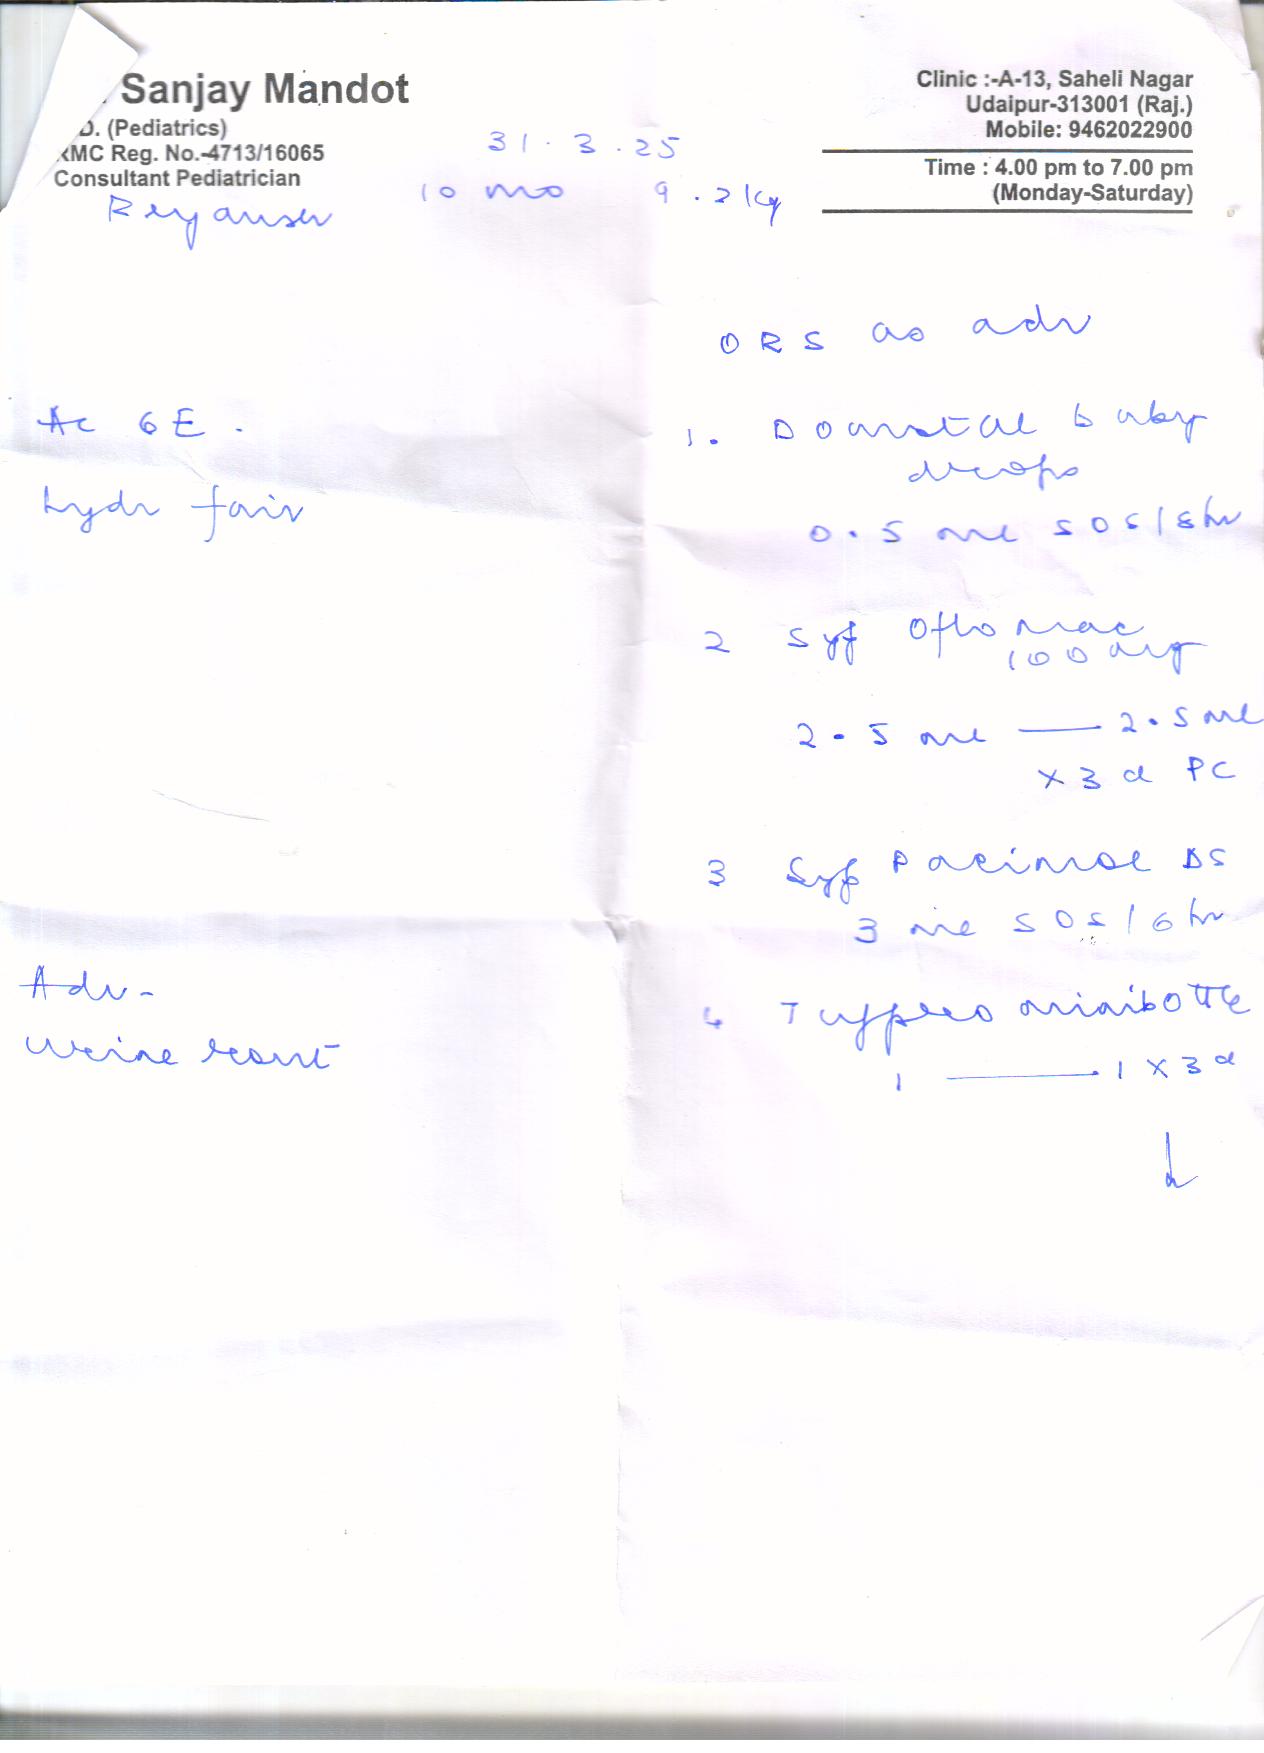 Sanjay Mandot
D. (Pediatrics)
RMC Reg. No.-4713/16065
Consultant Pediatrician
Clinic :-A-13, Saheli Nagar
Udaipur-313001 (Raj.)
Mobile: 9462022900
Time : 4.00 pm to 7.00 pm
(Monday-Saturday)
31.3.25
10 mo 9.2kg
Reyansh
ORS as adv
Ac GE.
hydr fair
1. Domstal baby
drops
0.5 ml SOS/8hr
2 Syp Oflomac
100 mg
2.5 ml — 2.5 ml
x 3 d PC
3 Syp Pacimol DS
3 ml SOS/6hr
Adv-
urine rout
4 Tufpro minibottle
1 — 1 x 3d